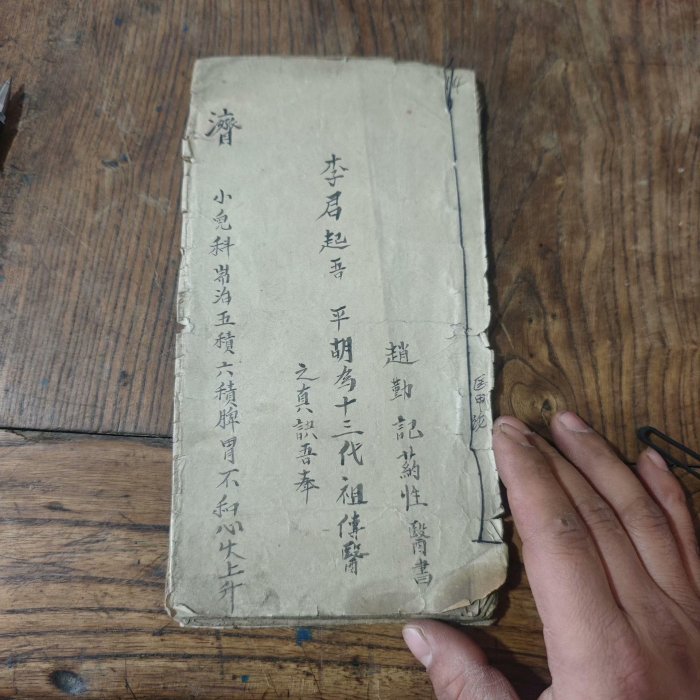 趙勤記葯性醫書
李君起吾 平胡為十三代祖傳醫
之真訣吾奉
濟
小兒科耑治五積六積脾胃不和心火上升